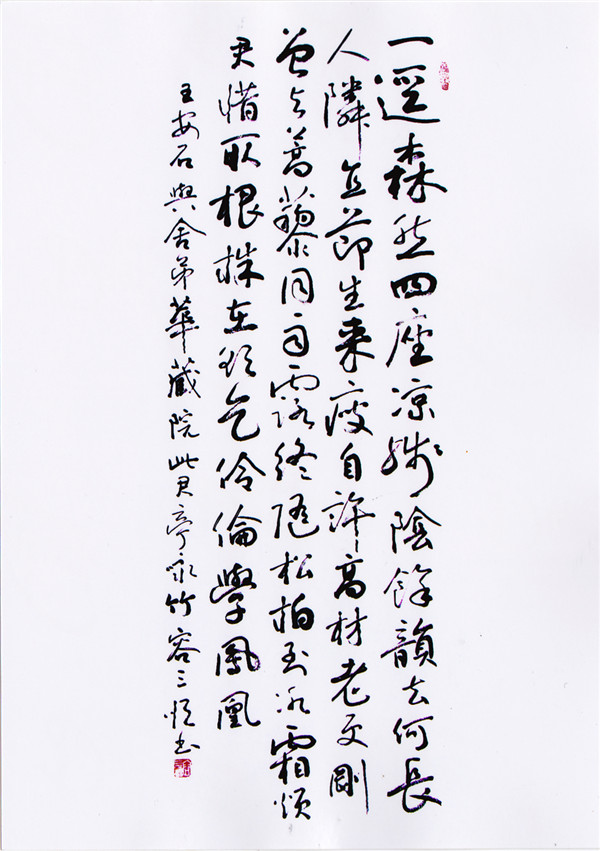 一逕森然四座涼殘陰餘韻去何長
人憐直節生來瘦自許高材老更剛
曾与蒿藜同雨露終隨松柏到冰霜煩
君惜取根株在欲乞伶倫學鳳凰
王安石與舍弟華藏院此君亭詠竹 三書